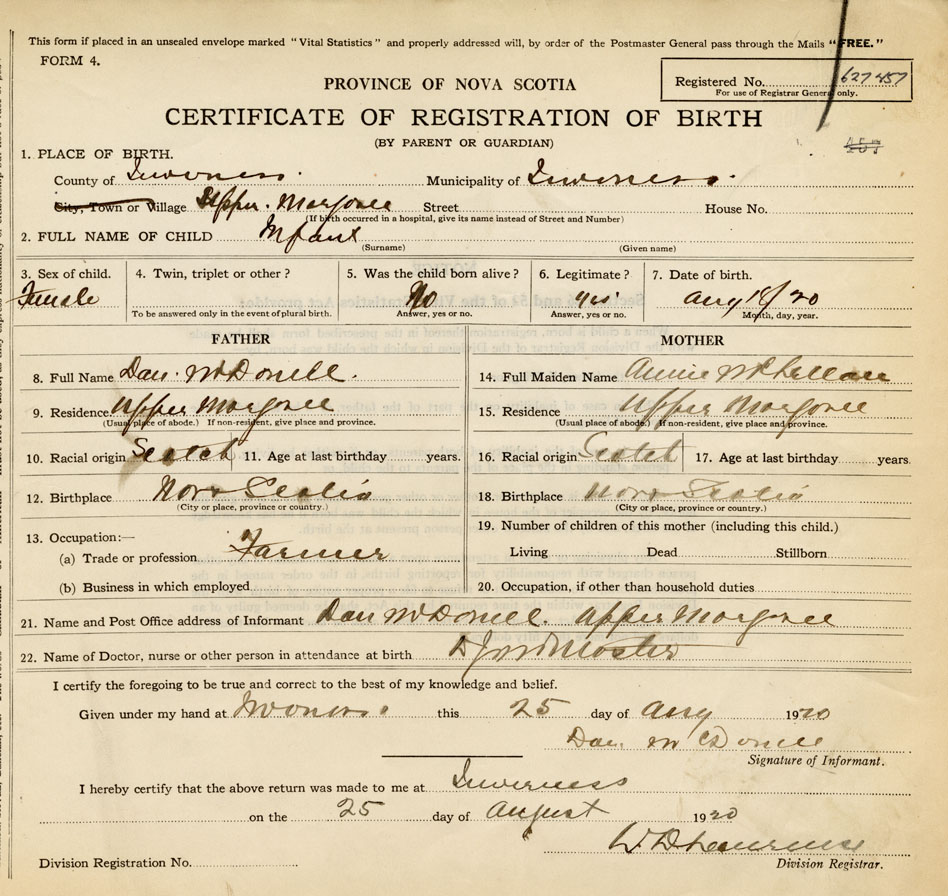 This form if placed in an unsealed envelope marked "Vital Statistics" and properly addressed will, by order of the Postmaster General pass through the Mails "FREE."
FORM 4.
Registered No. 627457
For use of Registrar General only.
PROVINCE OF NOVA SCOTIA
CERTIFICATE OF REGISTRATION OF BIRTH
(BY PARENT OR GUARDIAN)
1. PLACE OF BIRTH.
County of Inverness. Municipality of Inverness.
City, Town or Village Upper. Margaree Street House No.
(If birth occurred in a hospital, give its name instead of Street and Number)
2. FULL NAME OF CHILD Infant
(Surname) (Given name)
3. Sex of child. 4. Twin, triplet or other? 5. Was the child born alive? 6. Legitimate? 7. Date of birth.
Female No yes Aug 18/20
To be answered only in the event of plural birth. Answer, yes or no. Answer, yes or no. Month, day, year.
FATHER MOTHER
8. Full Name Dan. McDonell. 14. Full Maiden Name Annie McLellan
9. Residence. Upper Margaree 15. Residence Upper Margaree
(Usual place of abode.) If non-resident, give place and province. (Usual place of abode.) If non-resident, give place and province.
10. Racial origin Scotch 11. Age at last birthday years. 16. Racial origin Scotch 17. Age at last birthday years.
12. Birthplace Nova Scotia 18. Birthplace Nova Scotia
(City or place, province or country.) (City or place, province or country.)
13. Occupation:— 19. Number of children of this mother (including this child.)
(a) Trade or profession Farmer Living Dead Stillborn
(b) Business in which employed 20. Occupation, if other than household duties
21. Name and Post Office address of Informant Dan McDonell. Upper Margaree
22. Name of Doctor, nurse or other person in attendance at birth
I certify the foregoing to be true and correct to the best of my knowledge and belief.
Given under my hand at Inverness this 25 day of Aug 1920
Dan. McDonell
Signature of Informant.
I hereby certify that the above return was made to me at Inverness
on the 25 day of August 1920
Division Registration No. Division Registrar.